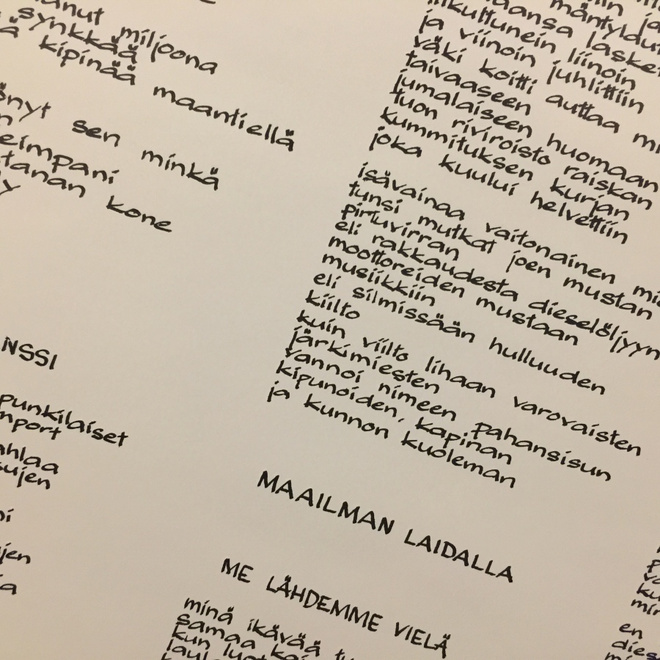 miljoona
synkkää
kipinää maantiellä
sen minkä
kone
NSSI
punkilaiset
liinoin
ja viinoin juhlittiin
väki koitti auttaa
taivaaseen
jumalaiseen huomaan
tuon riviroisto raiskan
kummituksen kurjan
joka kuului helvettiin
isävainaa vaitonainen
tunsi mutkat joen mustan
pirtuvirran
eli rakkaudesta dieselöljyyn
moottoreiden mustaan
musiikkiin
eli silmissään hulluuden
kiilto
kuin viilto lihaan varovaisten
järkimiesten
vannoi nimeen pahansisun
kipunoiden, kapinan
ja kunnon kuoleman
MAAILMAN LAIDALLA
ME LÄHDEMME VIELÄ
minä ikävää
samaa
kun
en